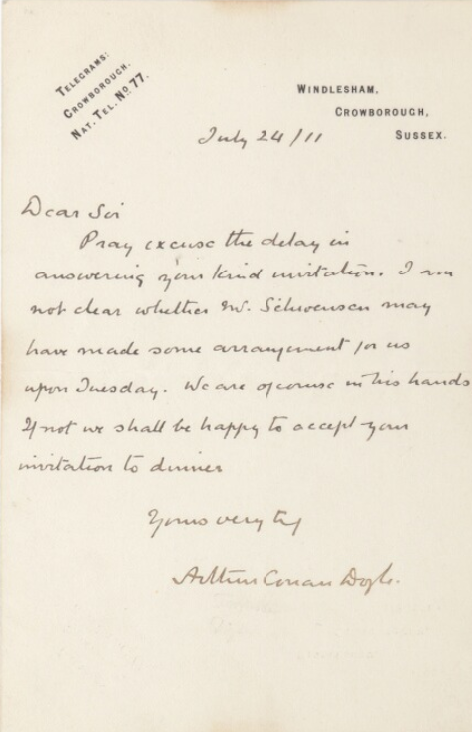 TELEGRAMS:
CROWBOROUGH.
NAT. TEL. No. 77.
WINDLESHAM,
CROWBOROUGH,
SUSSEX.
July 24/11
Dear Sir
Pray excuse the delay in
answering your kind invitation. I am
not clear whether may
have made some arrangement for us
upon Tuesday. We are of course in his hands
If not we shall be happy to accept your
invitation to dinner
Yours very try
Arthur Conan Doyle.